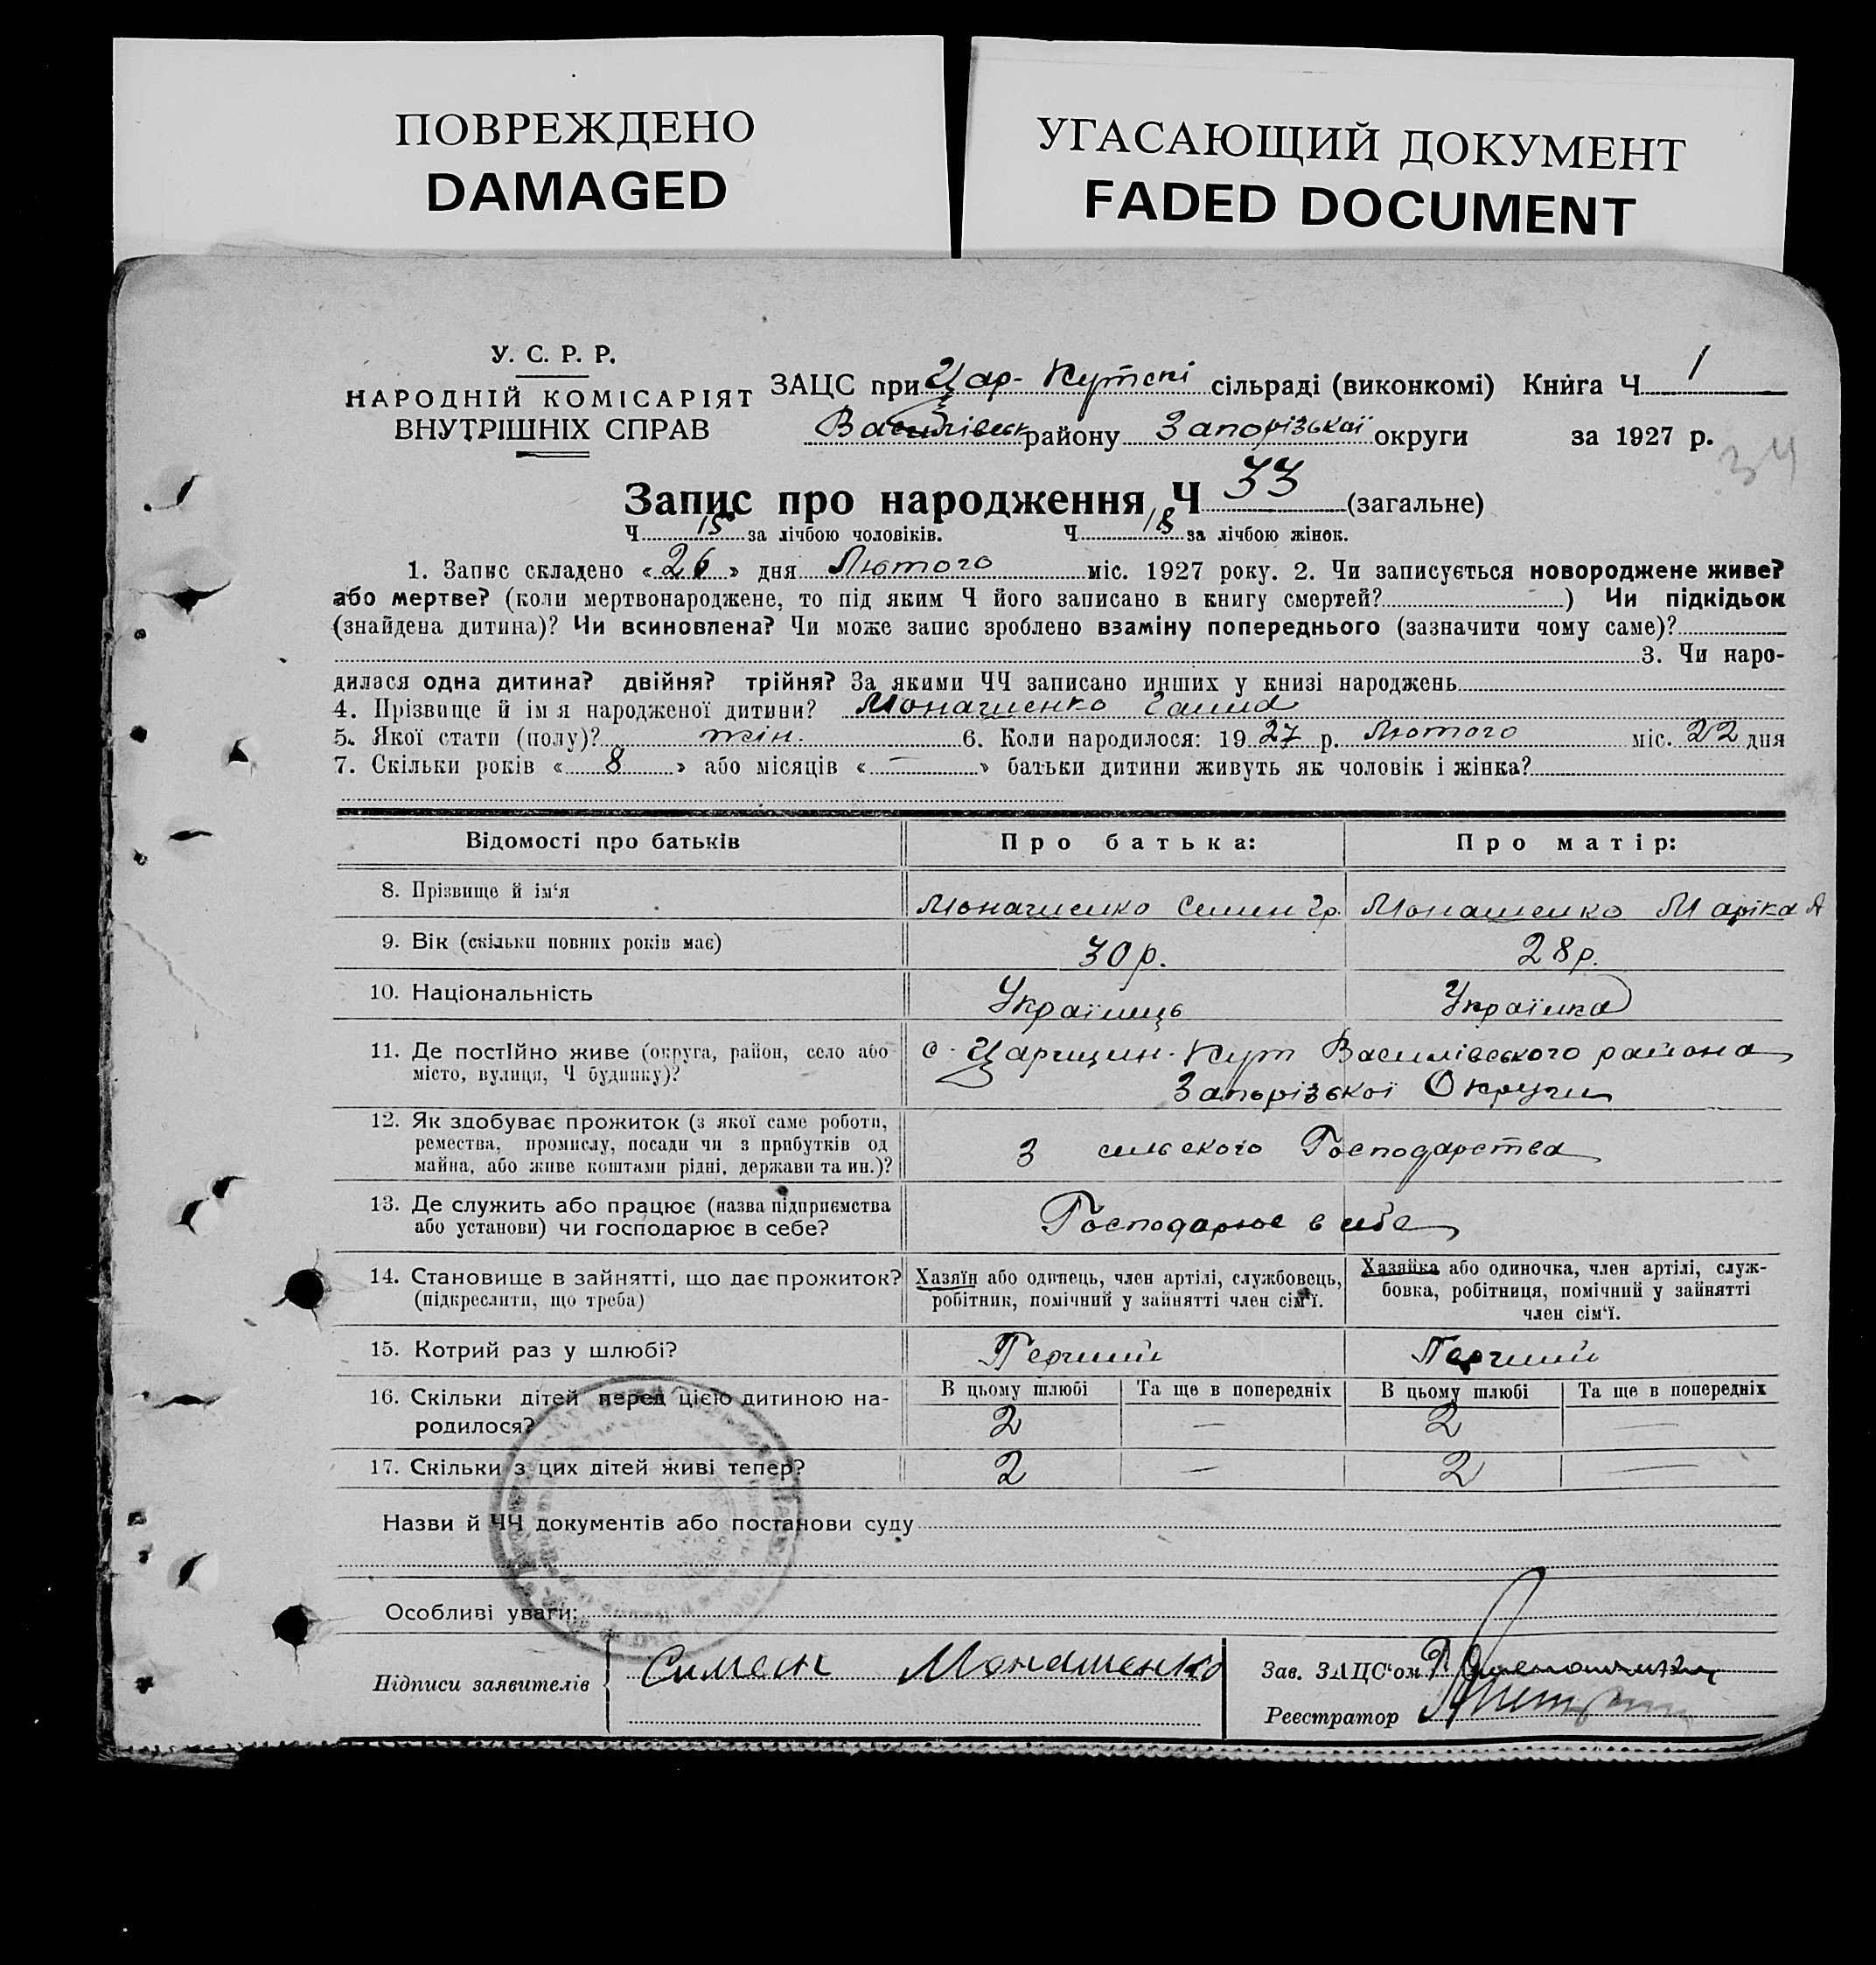 ПОВРЕЖДЕНО
DAMAGED
УГАСАЮЩИЙ ДОКУМЕНТ
FADED DOCUMENT
У. С. Р. Р.
НАРОДНІЙ КОМІСАРІЯТ
ВНУТРІШНІХ СПРАВ
ЗАЦС при Цар-Кутскі сільраді (виконкомі) Книга Ч 1
Василівськ району Запорізької округи за 1927 р.
34
Запис про народження Ч 33 (загальне)
Ч 15 за лічбою чоловіків. Ч 18 за лічбою жінок.
1. Запис складено «26» дня Лютого міс. 1927 року. 2. Чи записується новороджене живе?
або мертве? (коли мертвонароджене, то під яким Ч його записано в книгу смертей?) Чи підкідьок
(знайдена дитина)? Чи всиновлена? Чи може запис зроблено взаміну попереднього (зазначити чому саме)?
3. Чи наро-
дилася одна дитина? двійня? трійня? За якими ЧЧ записано инших у книзі народжень
4. Прізвище й імя народженої дитини? Монашенко Галина
5. Якої стати (полу)? жін. 6. Коли народилося: 1927 р. Лютого міс. 22 дня
7. Скільки років «8» або місяців «—» батьки дитини живуть як чоловік і жінка?
Відомості про батьків Про батька: Про матір:
8. Прізвище й ім'я Монашенко Семен Гр. Монашенко Маріка А
9. Вік (скільки повних років має) 30 р. 28 р.
10. Національність Українць Українка
11. Де постійно живе (округа, район, село або с. Царицин-Кут Василівського района
місто, вулиця, Ч будинку)? Запорізької Округи
12. Як здобуває прожиток (з якої саме роботи,
ремества, промислу, посади чи з прибутків од З сельского Господарства
майна, або живе коштами рідні, держави та ин.)?
13. Де служить або працює (назва підприємства Господарює в себе
або установи) чи господарює в себе?
14. Становище в зайнятті, що дає прожиток? Хазяїн або одинець, член артілі, службовець, Хазяйка або одиночка, член артілі, служ-
(підкреслити, що треба) робітник, помічний у зайнятті член сім'ї. бовка, робітниця, помічний у зайнятті
член сім'ї.
15. Котрий раз у шлюбі? Перший Перший
16. Скільки дітей перед цією дитиною на- В цьому шлюбі Та ще в попередніх В цьому шлюбі Та ще в попередніх
родилося? 2 — 2 —
17. Скільки з цих дітей живі тепер? 2 — 2 —
Назви й ЧЧ документів або постанови суду
Особливі уваги:
Підписи заявителів Симеон Монашенко Зав. ЗАЦС'ом
Реєстратор